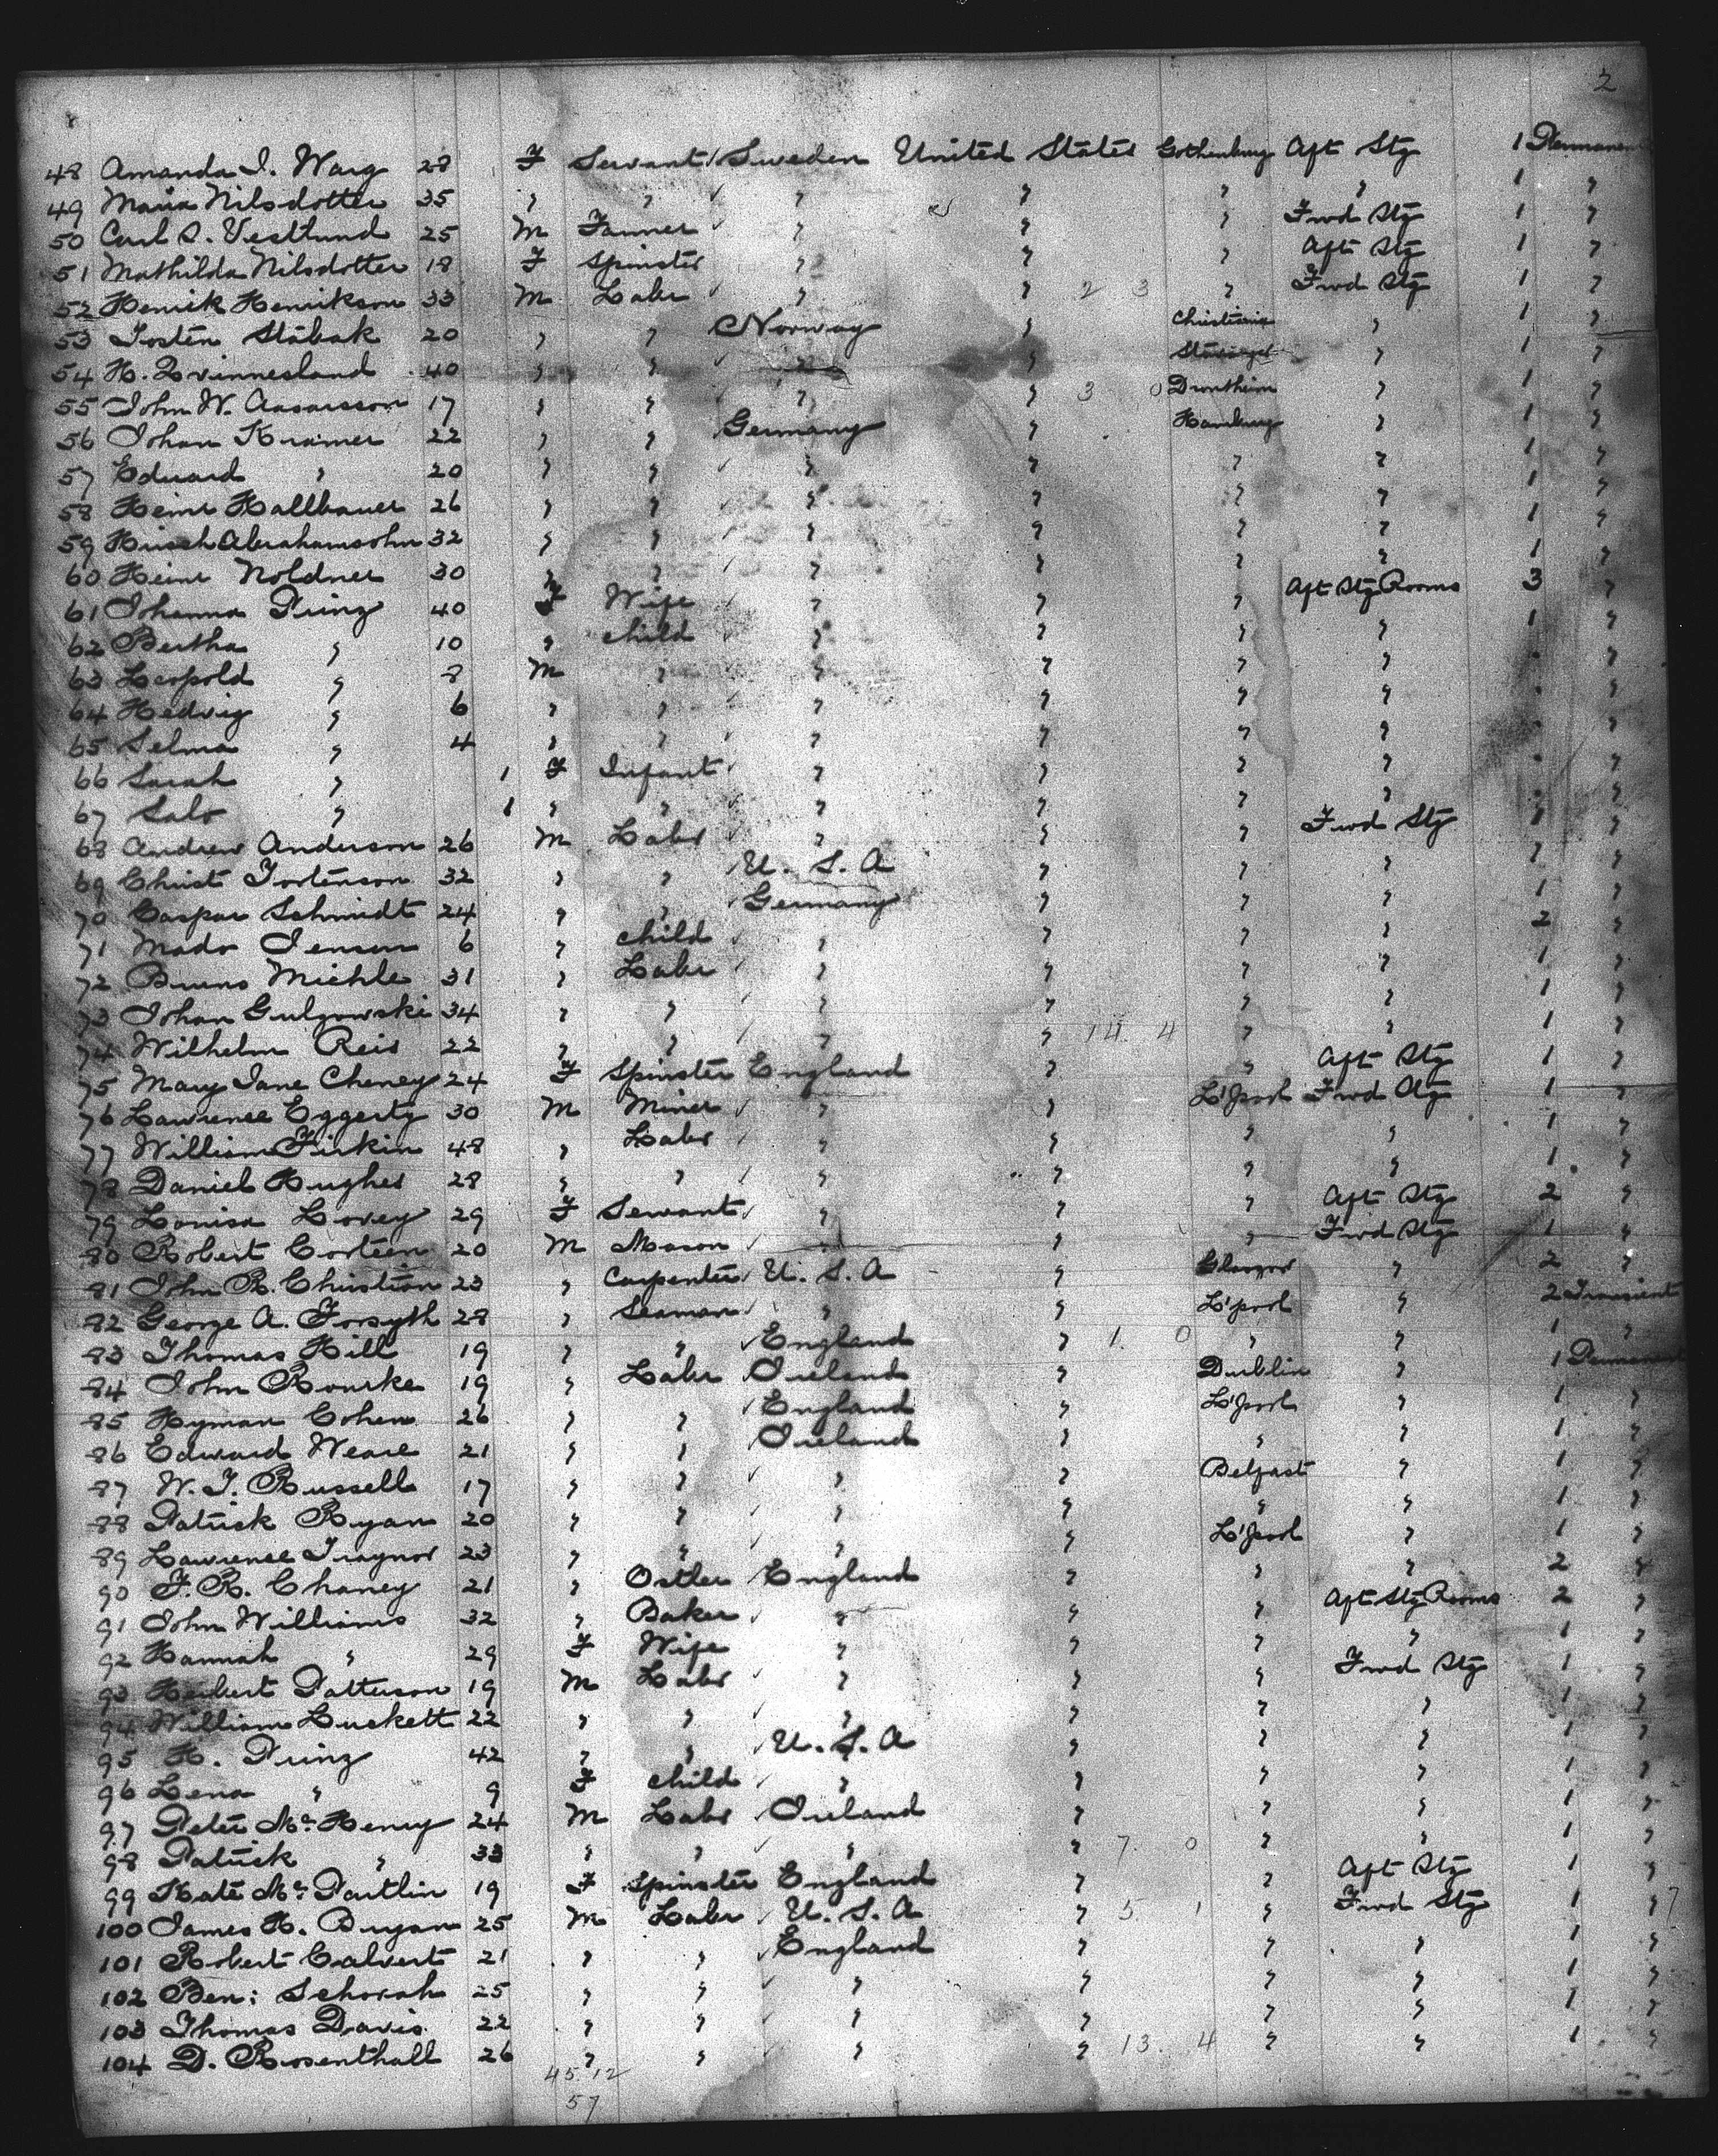 2
48 Amanda I. Warg 28 F Servant Sweden United States Gothenburg Aft Stg 1 Permanent
49 Maria Nilsdotter 35 " " " " " " 1 "
50 Carl S. Vestlund 25 M Farmer " " " Fwd Stg 1 "
51 Mathilda Nilsdotter 18 F Spinster " " " Aft Stg 1 "
52 Henrick Henrikson 33 M Labr " " 2 3 " Fwd Stg 1 "
53 Tosten Stabak 20 " " Norway " Christiania " 1 "
54 H. Qvinnesland 40 " " " " Stavanger " 1 "
55 John W. Aasarsson 17 " " " " 3 0 Drontheim " 1 "
56 Johan Kramer 22 " " Germany " Hamburg " 1 "
57 Eduard " 20 " " " " " " 1 "
58 Heinr Hallbauer 26 " " " " " " 1 "
59 Hirsch Abrahamsohn 32 " " " " " " 1 "
60 Heinr Noldner 30 " " " " " " 1 "
61 Johanna Prinz 40 F Wife " " " Aft Stg Rooms 3 "
62 Bertha " 10 " child " " " " 1 "
63 Leopold " 8 M " " " " " "
64 Hedvig " 6 " " " " " " "
65 Selma " 4 " " " " " " "
66 Sarah " 1 F Infant " " " " "
67 Salo " 1 " " " " " " "
68 Andrew Anderson 26 M Labr " " " Fwd Stg 1 "
69 Christ Tortenson 32 " " U.S.A " " " 1 "
70 Caspar Schmidt 24 " " Germany " " " 1 "
71 Mads Jensen 6 " child " " " " 2 "
72 Bruno Michle 31 " Labr " " " " 1 "
73 Johan Gulzowski 34 " " " " " " 1 "
74 Wilhelm Reis 22 " " " " 14. 4 " " 1 "
75 Mary Jane Cheney 24 F Spinster England " " Aft Stg 1 "
76 Lawrence Eggerty 30 M Miner " " L'pool Fwd Stg 1 "
77 William Firkin 48 " Labr " " " " 1 "
78 Daniel Hughes 28 " " " " " " 1 "
79 Louisa Lovey 29 F Servant " " " Aft Stg 2 "
80 Robert Corteen 20 M Mason " " " Fwd Stg 1 "
81 John R. Christian 23 " Carpenter U.S.A " Glasgow " 2 "
82 George A. Forsyth 28 " Seaman " " L'pool " 2 Transient
83 Thomas Hill 19 " " England " 1. 0 " " 1 "
84 John Rourke 19 " Labr Ireland " Dublin " 1 Permanent
85 Hyman Cohen 26 " " England " L'pool " 1 "
86 Edward Weare 21 " " Ireland " " " 1 "
87 W. J. Russell 17 " " " " Belfast " 1 "
88 Patrick Ryan 20 " " " " " " 1 "
89 Lawrence Traynor 23 " " " " L'pool " 1 "
90 F. R. Chaney 21 " Ostler England " " " 2 "
91 John Williams 32 " Baker " " " Aft Stg Rooms 2 "
92 Hannah " 29 F Wife " " " " 1 "
93 Herbert Patterson 19 M Labr " " " Fwd Stg 1 "
94 William Luckett 22 " " " " " " 1 "
95 H. Prinz 42 " " U.S.A " " " 1 "
96 Lena " 9 F child " " " " 1 "
97 Peter McHenry 24 M Labr Ireland " " " 1 "
98 Patrick " 33 " " " " 7. 0 " " 1 "
99 Kate McPartlin 19 F Spinster England " " Aft Stg 1 "
100 James H. Bryan 25 M Labr U.S.A " 5. 1 " Fwd Stg 1 " 7
101 Robert Calvert 21 " " England " " " 1 "
102 Ben: Schorah 25 " " " " " " 1 "
103 Thomas Davis 22 " " " " " " 1 "
104 D. Rosenthall 26 " " " " 13. 4 " " 1 "
45.12
57